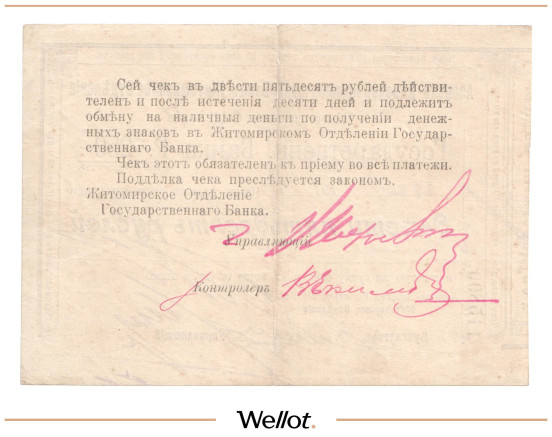 Сей чекъ въ двѣсти пятьдесятъ рублей дѣйстви-
теленъ и послѣ истеченія десяти дней и подлежитъ
обмѣну на наличныя деньги по полученіи денеж-
ныхъ знаковъ въ Житомирскомъ Отдѣленіи Государ-
ственнаго Банка.
Чекъ этотъ обязателенъ къ пріему во всѣ платежи.
Поддѣлка чека преслѣдуется закономъ.
Житомирское Отдѣленіе
Государственнаго Банка.
Управляющій
Контролеръ
Wellot.